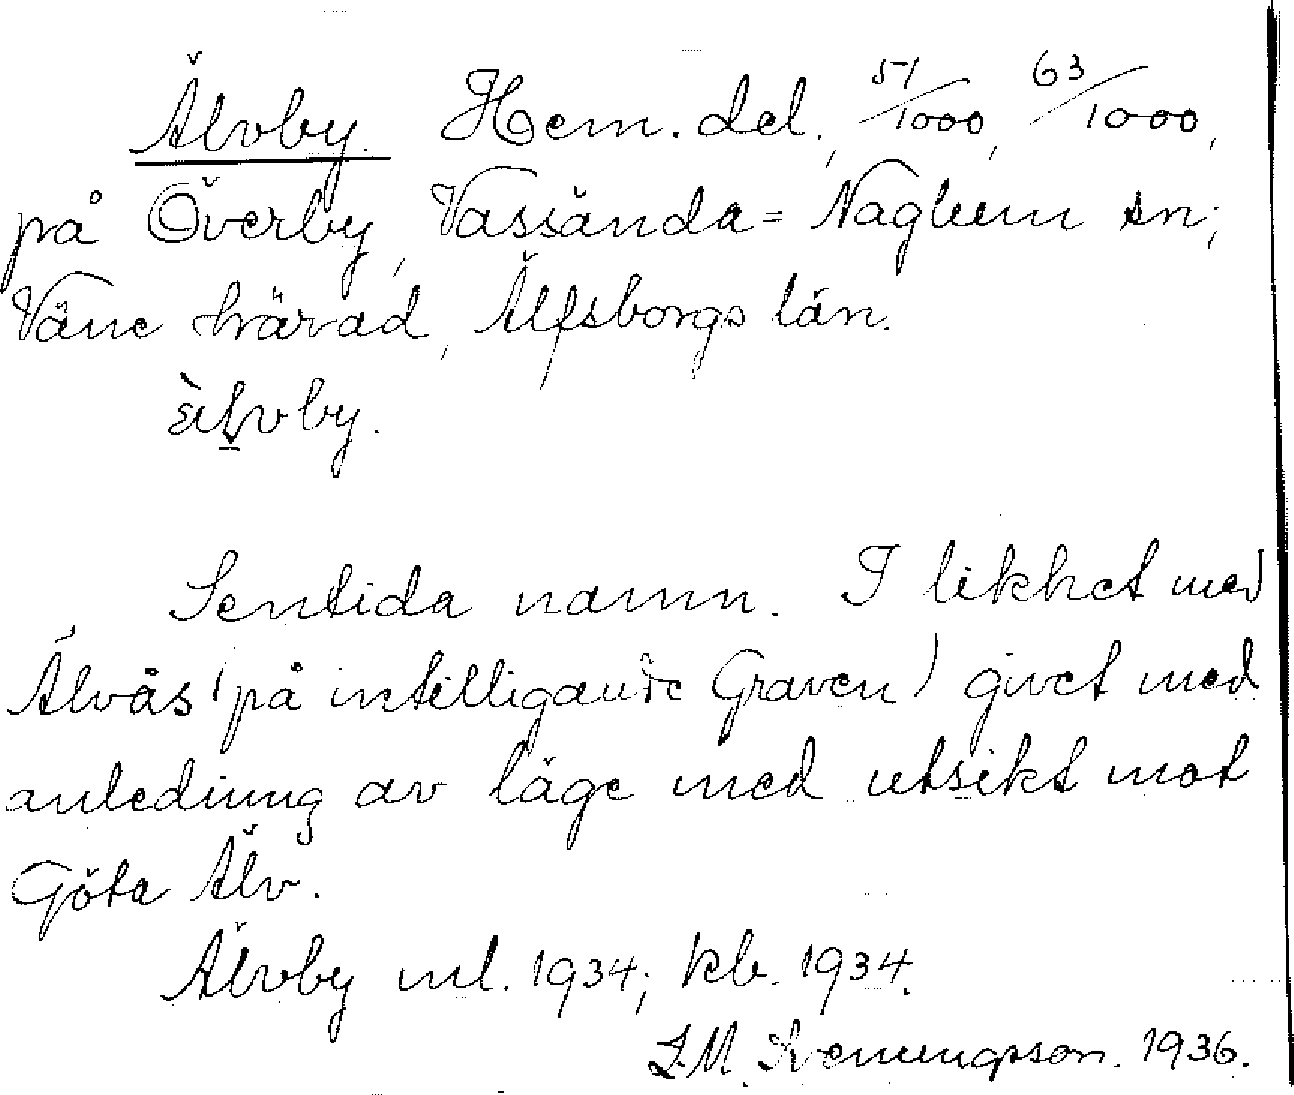 Älvby. Hem. del, 51/1000, 63/1000,
på Överby, Vassända=Naglum sn;
Väne härad, Älfsborgs län.
älvby.
Sentida namn. I likhet med
Älvås (på intilligande Graven) givet med
anledning av läge med utsikt mot
Göta Älv.
Älvby ml. 1934; kb. 1934.
Svenungsson. 1936.